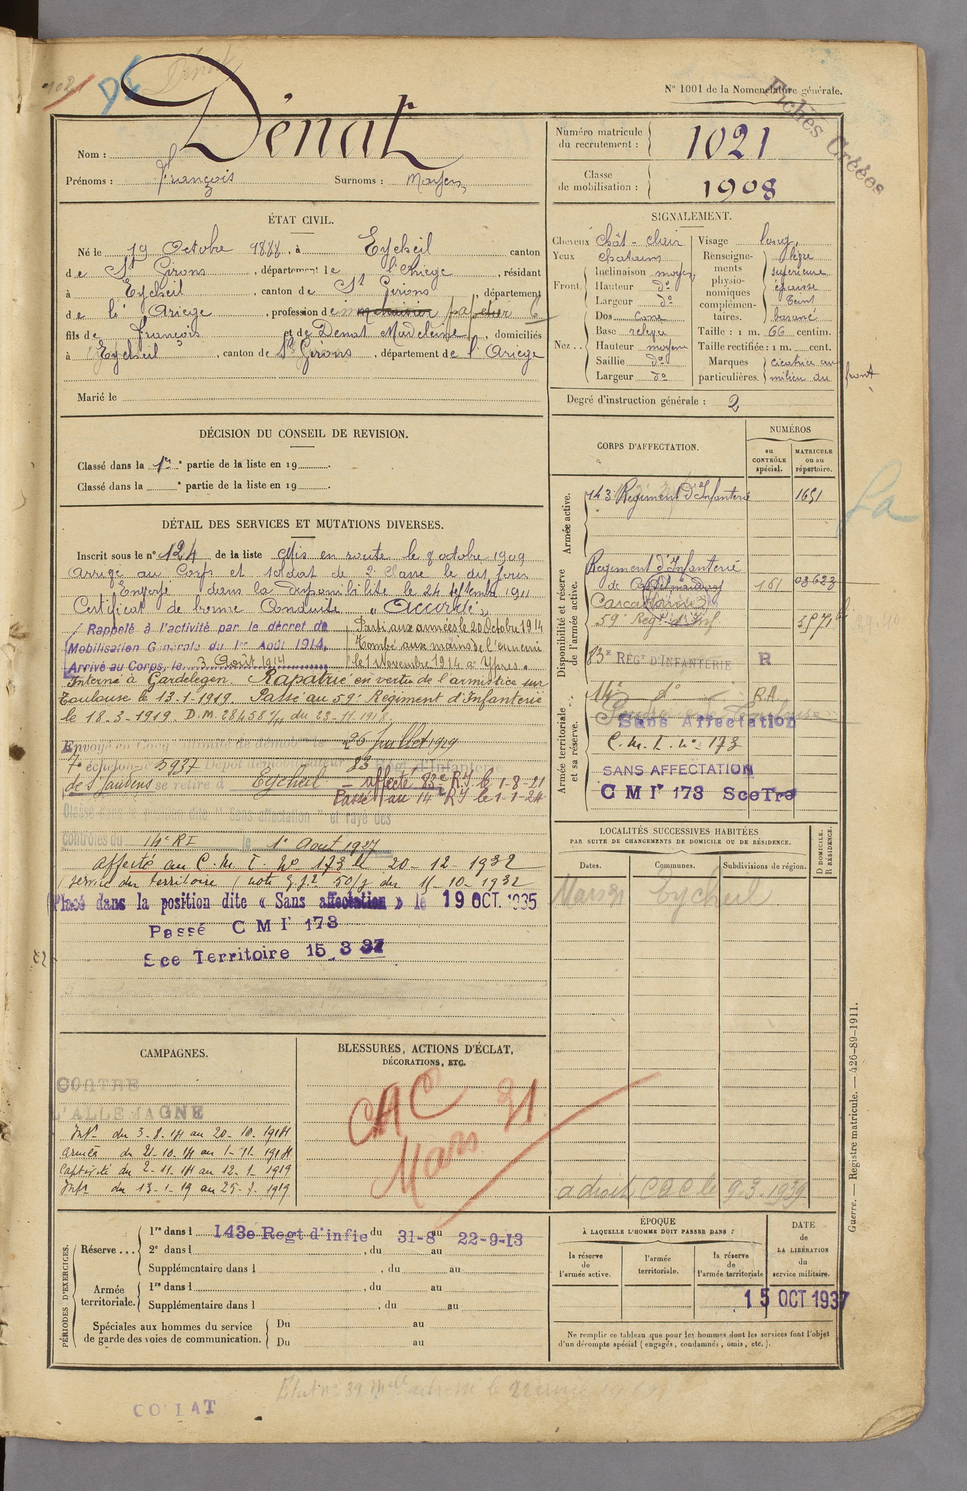 N° 1001 de la Nomenclature générale.
Fiches Créées
Nom : Dénat
Prénoms : François Surnoms :
Numéro matricule du recrutement : 1021
Classe de mobilisation : 1908
ÉTAT CIVIL.
Né le 19 Octobre 1888, à Eycheil canton
de St Girons, département de l'Ariège, résidant
à Eycheil, canton de St Girons, département
de l'Ariège, profession de papetier
fils de François et de Dénat Madeleine, domiciliés
à Eycheil, canton de St Girons, département de l'Ariège
Marié le
SIGNALEMENT.
Cheveux chât-clair
Yeux chatains
Front Inclinaison moyen
Hauteur do
Largeur do
Nez Dos
Base relevée
Hauteur moyen
Saillie do
Largeur do
Visage long
Renseignements physionomiques complémentaires. lèvre supérieure épaisse teint basané
Taille : 1 m. 66 centim.
Taille rectifiée : 1 m. cent.
Marques particulières. cicatrice au milieu du front
Degré d'instruction générale : 2
DÉCISION DU CONSEIL DE REVISION.
Classé dans la 1re partie de la liste en 19
Classé dans la e partie de la liste en 19
DÉTAIL DES SERVICES ET MUTATIONS DIVERSES.
Inscrit sous le n° 124 de la liste Mis en route le 8 octobre 1909
Arrivé au Corps et soldat de 2e Classe le dit jour
Envoyé dans la disponibilité le 24 septembre 1911
Certificat de bonne Conduite "Accordé"
Rappelé à l'activité par le décret de
Mobilisation Générale du 1er Août 1914.
Arrivé au Corps, le 3 Août 1914
Parti aux armées le 20 Octobre 1914
Tombé aux mains de l'ennemi
le 1 Novembre 1914 à Ypres
Interné à Gardelegen. Rapatrié en vertu de l'armistice sur
Toulouse le 13-1-1919. Passé au 59e Régiment d'Infanterie
le 18-3-1919.
Envoyé en Congé illimité de démob le 26 Juillet 1919
7e échelon n° 5937 Dépôt démobilisateur 83 Regt d'Infanterie
de St Gaudens se retire à Eycheil - affecté 83e RI le 1-8-21
Passé au 14e RI le 1-1-24
Classé dans la position dite "Sans affectation" et rayé des
contrôles du 14e RI le 1er Août 1927
affecté au C.M.I. N° 173 le 20-12-1932
(service du territoire
Placé dans la position dite « Sans affectation » le 19 OCT. 1935
Passé CMI 173
Sce Territoire 15.3 37
CORPS D'AFFECTATION.
NUMÉROS
au CONTRÔLE spécial.
MATRICULE ou au répertoire.
Armée active.
143 Régiment d'Infanterie 1651
Disponibilité et réserve de l'armée active.
Régiment d'Infanterie
de
Carcassonne
161 03623
59e Regt d'Inf
83e RÉGt D'INFANTERIE R
Armée territoriale et sa réserve.
14e do R.A.
Sans Affectation
C.M.I. n° 173
SANS AFFECTATION
CMI 173 Sce Tre
LOCALITÉS SUCCESSIVES HABITÉES
PAR SUITE DE CHANGEMENTS DE DOMICILE OU DE RÉSIDENCE.
Dates. Communes. Subdivisions de région. D DOMICILE. R RÉSIDENCE.
Mars 31 Eycheil
a droit CAC le 9.3.1939
CAMPAGNES.
CONTRE
L'ALLEMAGNE
Intr du 3-8-14 au 20-10-1914
Armée du 21-10-14 au 1-11-1914
Captivité du 2-11-14 au 12-1-1919
Intr du 13-1-19 au 25-7-1919
BLESSURES, ACTIONS D'ÉCLAT,
DÉCORATIONS, ETC.
CAC 31
Mars
PÉRIODES D'EXERCICES.
Réserve... 1re dans l 143e Regt d'infie du 31-8 au 22-9-13
2e dans l , du au
Supplémentaire dans l , du au
Armée territoriale. 1re dans l , du au
Supplémentaire dans l , du au
Spéciales aux hommes du service de garde des voies de communication. Du au
Du au
ÉPOQUE
À LAQUELLE L'HOMME DOIT PASSER DANS :
la réserve de l'armée active.
l'armée territoriale.
la réserve de l'armée territoriale
DATE DE LA LIBÉRATION du service militaire.
15 OCT 1937
Ne remplir ce tableau que pour les hommes dont les services font l'objet
d'un décompte spécial (engagés, condamnés, omis, etc.).
Guerre. — Registre matricule. — 426-89-1911.